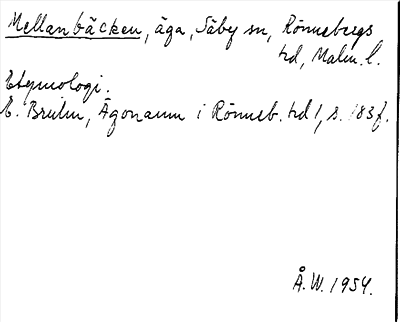 Mellanbäcken, äga, Säby sn, Rönnebergs
hd, Malm. l.
Etymologi.
E. Bruhn, Ägonamn i Rönneb. hd 1, s. 183f.
Å.W. 1954.